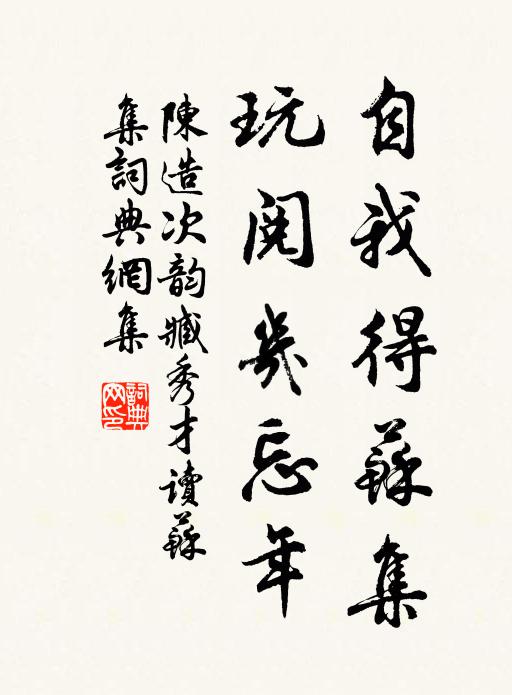 自我得蘇集
玩閱幾忘年
陳造次韵臧秀才讀蘇
集詞典網集
詞典
网印